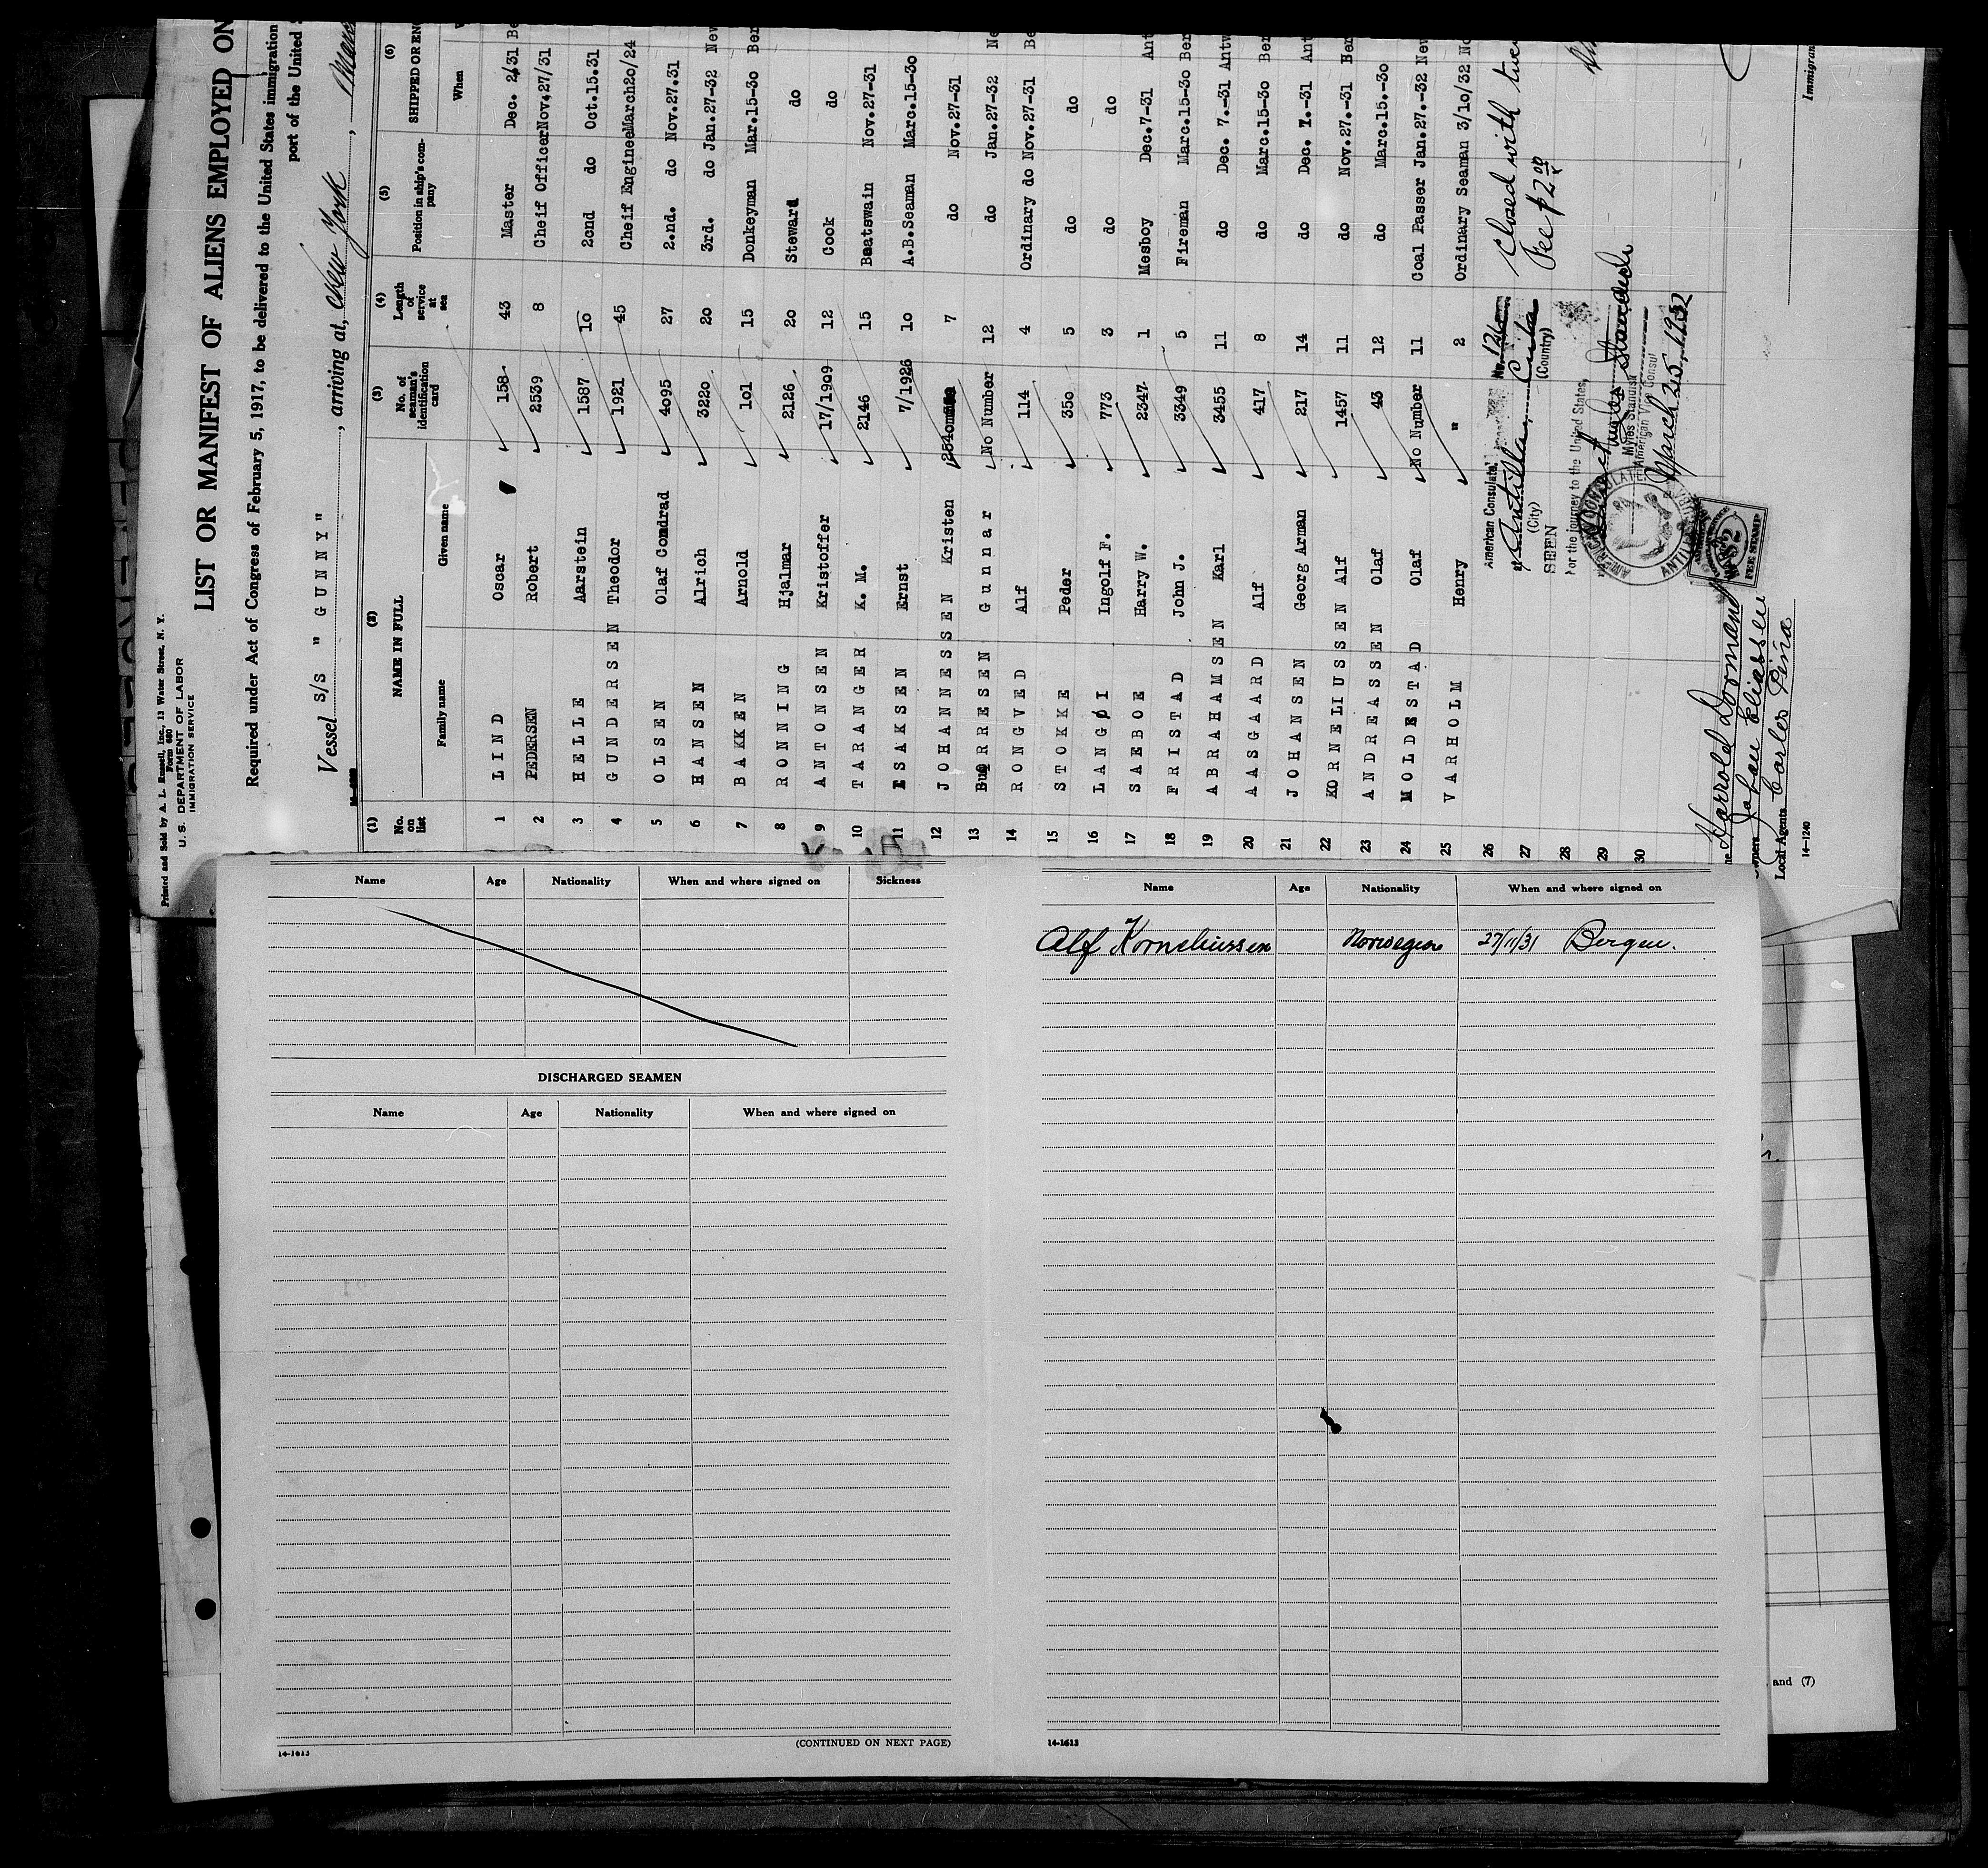 Printed and Sold by A. L. Russell, Inc., 13 Water Street, N. Y.
Form 680
U. S. DEPARTMENT OF LABOR
IMMIGRATION SERVICE
LIST OR MANIFEST OF ALIENS EMPLOYED ON
Required under Act of Congress of February 5, 1917, to be delivered to the United States immigration
port of the United
Vessel S/s " GUNNY ", arriving at, New York,
(1) (2) (3) (4) (5) (6)
No. on list NAME IN FULL No. of seaman's identification card Length of service at sea Position in ship's company SHIPPED OR ENG
Family name Given name When
1 LIND Oscar 158 43 Master Dec. 2/31 Be
2 PEDERSEN Robert 2539 8 Cheif Officer Nov.27/31
3 HELLE Aarstein 1587 10 2ond do Oct.15.31
4 GUNDERSEN Theodor 1921 45 Cheif Enginee March20/24
5 OLSEN Olaf Comdrad 4095 27 2.nd. do Nov.27.31
6 HANSEN Alrich 3220 20 3rd. do Jan.27-32 New
7 BAKKEN Arnold 101 15 Donkeyman Mar.15-30 Ber
8 RONNING Hjalmar 2126 20 Steward do
9 ANTONSEN Kristoffer 17/1909 12 Cook do
10 TARANGER K. M. 2146 15 Boatswain Nov.27-31
11 ESAKSEN Ernst 7/1926 10 A.B.Seaman Marc.15-30
12 JOHANNESSEN Kristen 7 do Nov.27-31
13 BØRRESEN Gunnar No Number 12 do Jan.27-32 Ne
14 RONGVED Alf 114 4 Ordinary do Nov.27-31 Be
15 STOKKE Peder 350 5 do do
16 LANGØI Ingolf F. 773 3 do do
17 SAEBOE Harry W. 2347 1 Mesboy Dec.7-31 Ant
18 FRISTAD John J. 3349 5 Fireman Marc.15-30 Ber
19 ABRAHAMSEN Karl 3455 11 do Dec. 7.-31 Antw
20 AASGAARD Alf 417 8 do Marc.15-30 Ber
21 JOHANSEN Georg Arman 217 14 do Dec. 7.-31 Ant
22 KORNELIUSSEN Alf 1457 11 do Nov.27.-31 Ber
23 ANDREASSEN Olaf 43 12 do Marc.15.-30
24 MOLDESTAD Olaf No Number 11 Coal Passer Jan.27.-32 New
25 VARHOLM Henry " 2 Ordinary Seaman 3/10/32 No
26
27
28
29
30
American Consulate No. 126
at Antilla, Cuba
(City) (Country)
SEEN
For the journey to the United States,
Myles Standish
American Vice Consul
March 25, 1932
Closed with
Fee $2.00
AMERICAN CONSULATE
ANTILLA
FEE STAMP
Local Agents Carlos Piña
14-1240
Immigran
Name Age Nationality When and where signed on Sickness
DISCHARGED SEAMEN
Name Age Nationality When and where signed on
(CONTINUED ON NEXT PAGE)
14-1613
Name Age Nationality When and where signed on
Alf Korneliussen Norwegian 27/11/31 Bergen.
14-1613
and (7)